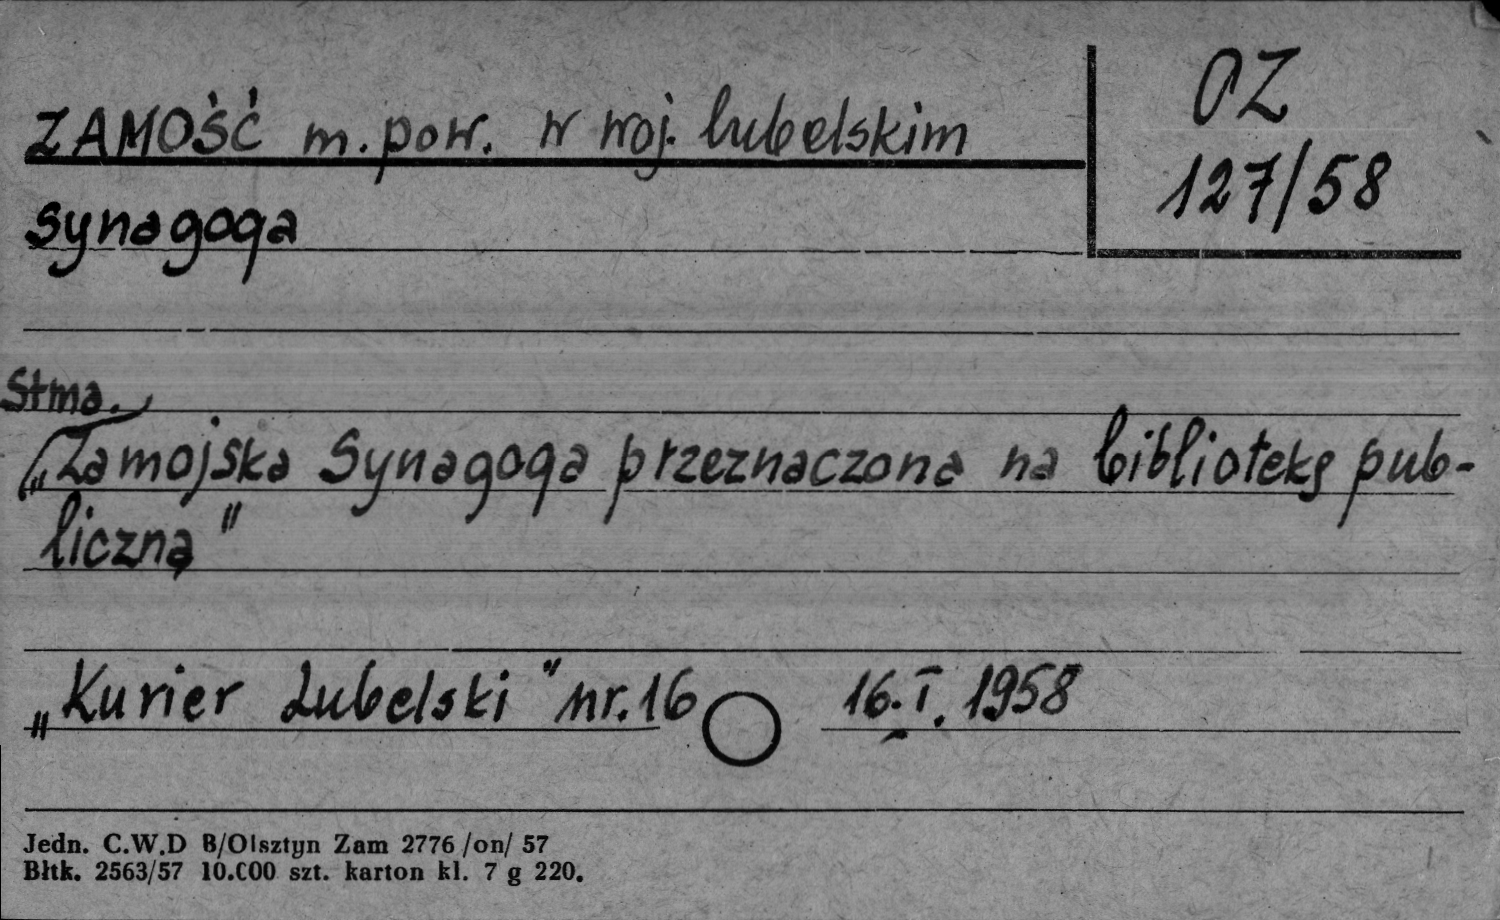 ZAMOŚĆ m. pow. w woj. lubelskim
OZ
127/58
synagoga
Stma.
„Zamojska Synagoga przeznaczona na bibliotekę pub-
liczną"
„Kurier Lubelski" nr. 16 16. I. 1958
Jedn. C.W.D B/Olsztyn Zam 2776 /on/ 57
Błtk. 2563/57 10.000 szt. karton kl. 7 g 220.